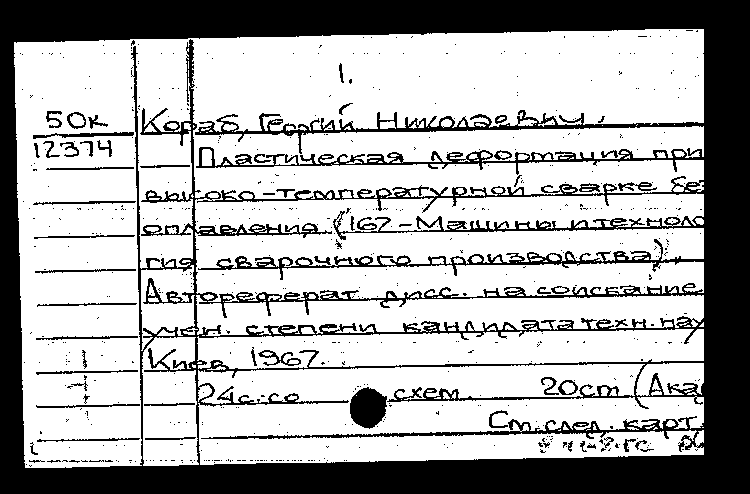 1.
50к Кораб, Георгий Николаевич.
12374 Пластическая деформация при
высоко-температурной сварке без
оплавления (167-Машины и техноло
гия сварочного производства).
Автореферат дисс. на соискание
учен. степени кандидата техн. нау
Киев, 1967.
24с. со схем. 20cm (Ака
См. след. карт.